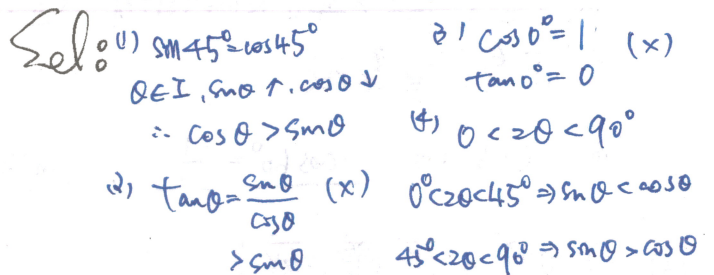 Sol:
(1) sin45°=cos45°
θ∈I, sinθ↑, cosθ↓
∴ cosθ>sinθ
(2) tanθ=sinθ/cosθ (×)
>sinθ
(3) cos0°=1 (×)
tan0°=0
(4) 0<2θ<90°
0°<2θ<45°⇒sinθ<cosθ
45°<2θ<90°⇒sinθ>cosθ